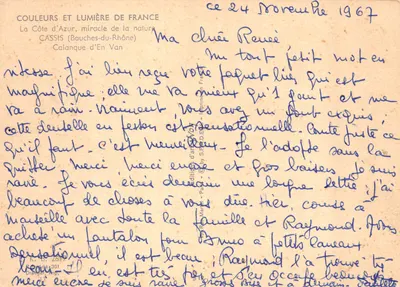 COULEURS ET LUMIÈRE DE FRANCE
La Côte d'Azur, miracle de la nature
CASSIS (Bouches-du-Rhône)
Calanque d'En Vau
ce 24 Novembre 1967
Ma chère Renée
Un tout petit mot en
vitesse. J'ai bien reçu votre paquet qui est
magnifique, elle me va mieux qu'1 gant et me
va à ravir. Vraiment vous avez un goût exquis,
cette dentelle en feston c'est sensationnelle. Juste ce
qu'il faut. c'est merveilleux. Je l'adopte sans la
quitter merci merci encore et gros baisers je suis
ravie. Je vous écris demain une longue lettre, j'ai
beaucoup de choses à vous dire. hier, course à
marseille avec toute la famille et Raymond. Avons
acheté un pantalon pour Bruno à petits carreaux
sensationnel, il est beau, Raymond l'a trouvé très
beau. Il en est très fier et s'en occupe beaucoup
merci encore je suis ravie gros bises et à demain.